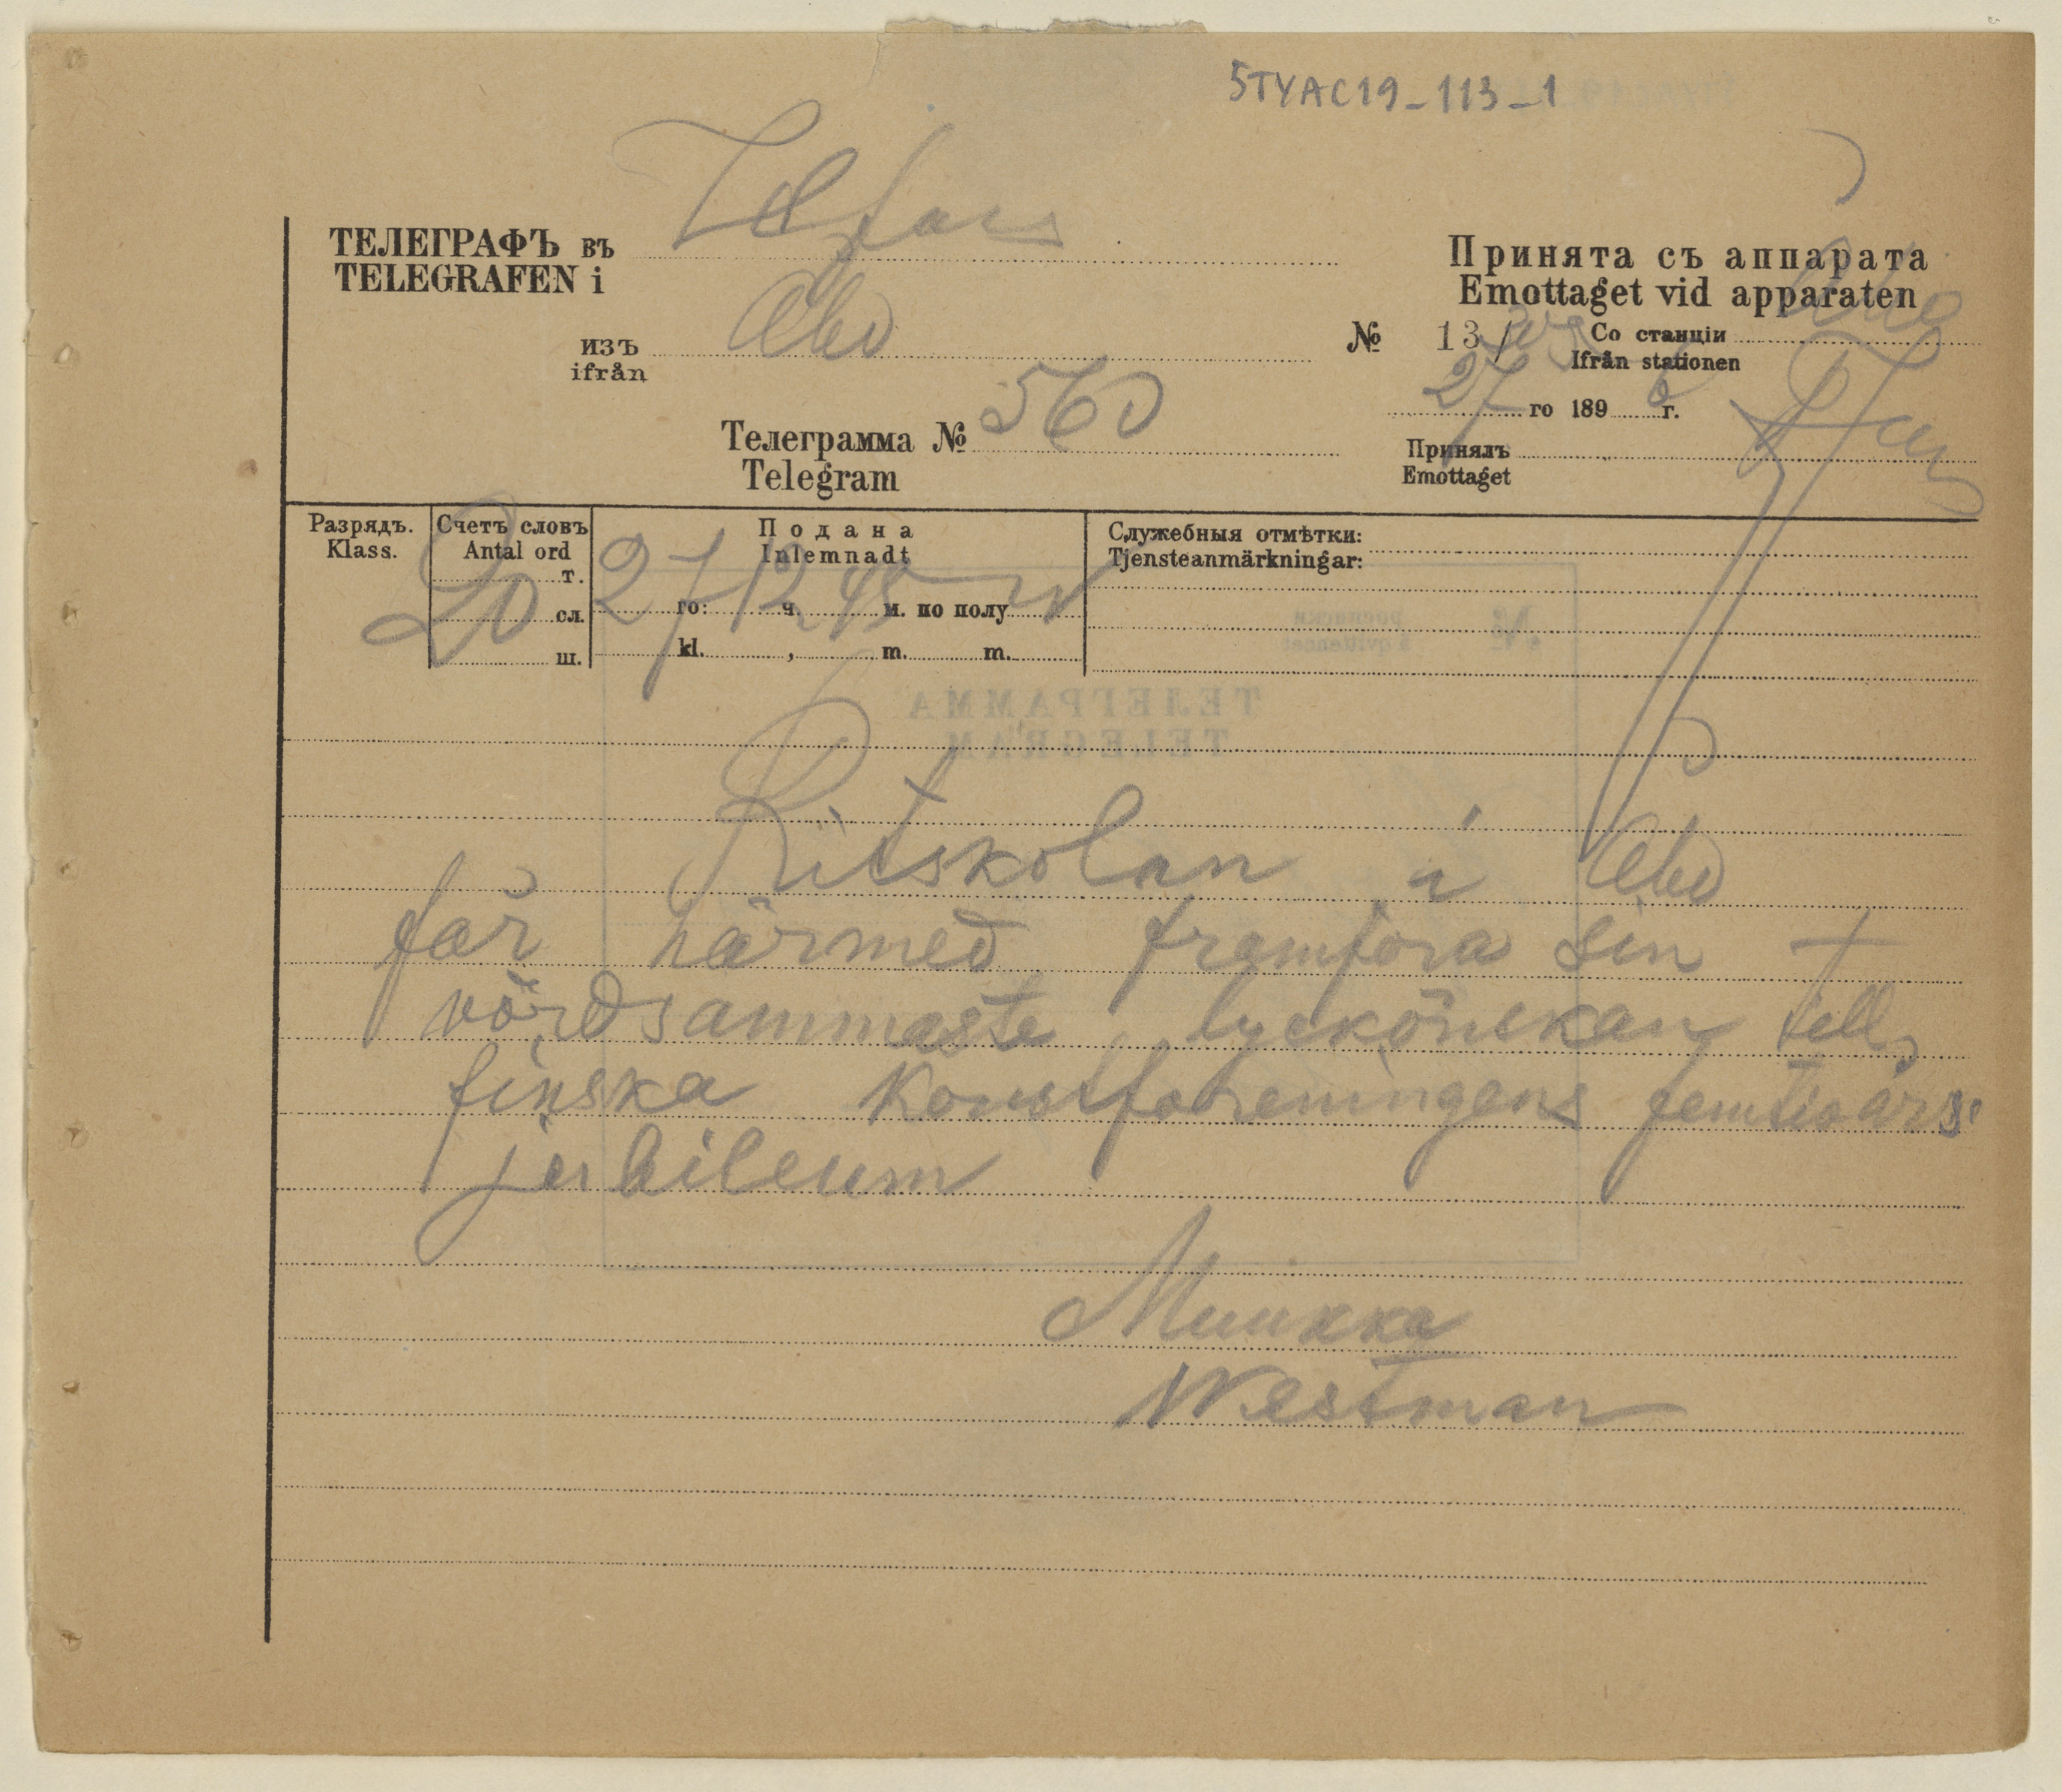 STYAC19-113-1
ТЕЛЕГРАФЪ въ Helsfors
TELEGRAFEN i
изъ Åbo
ifrån
Телеграмма № 560
Telegram
Принята съ аппарата
Emottaget vid apparaten
№ 13/ Со станціи Åbo
Ifrån stationen
27 го 1896 г.
Принялъ
Emottaget
Разрядъ.
Klass.
Счетъ словъ
Antal ord
т.
20 сл.
ш.
Подана
Inlemnadt
27 го: 12 ч. 45 м. по полу
kl. , m. m.
Служебныя отмѣтки:
Tjensteanmärkningar:
Ritskolan i Åbo
får härmed framföra sin
vördsammaste lyckönskan till
finska Konstföreningens femtioårs
jubileum
Muukka
Westman
№ росписки
à qvittencet
ТЕЛЕГРАММА
TELEGRAM